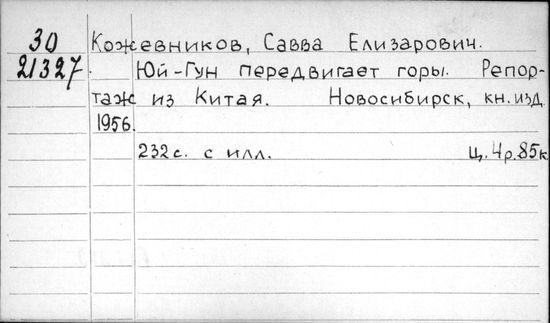 30 Кожевников, Савва Елизарович.
21327. Юй-Гун передвигает горы. Репор-
таж из Китая. Новосибирск, кн.изд
1956.
232с. с илл. ц.4р.85к